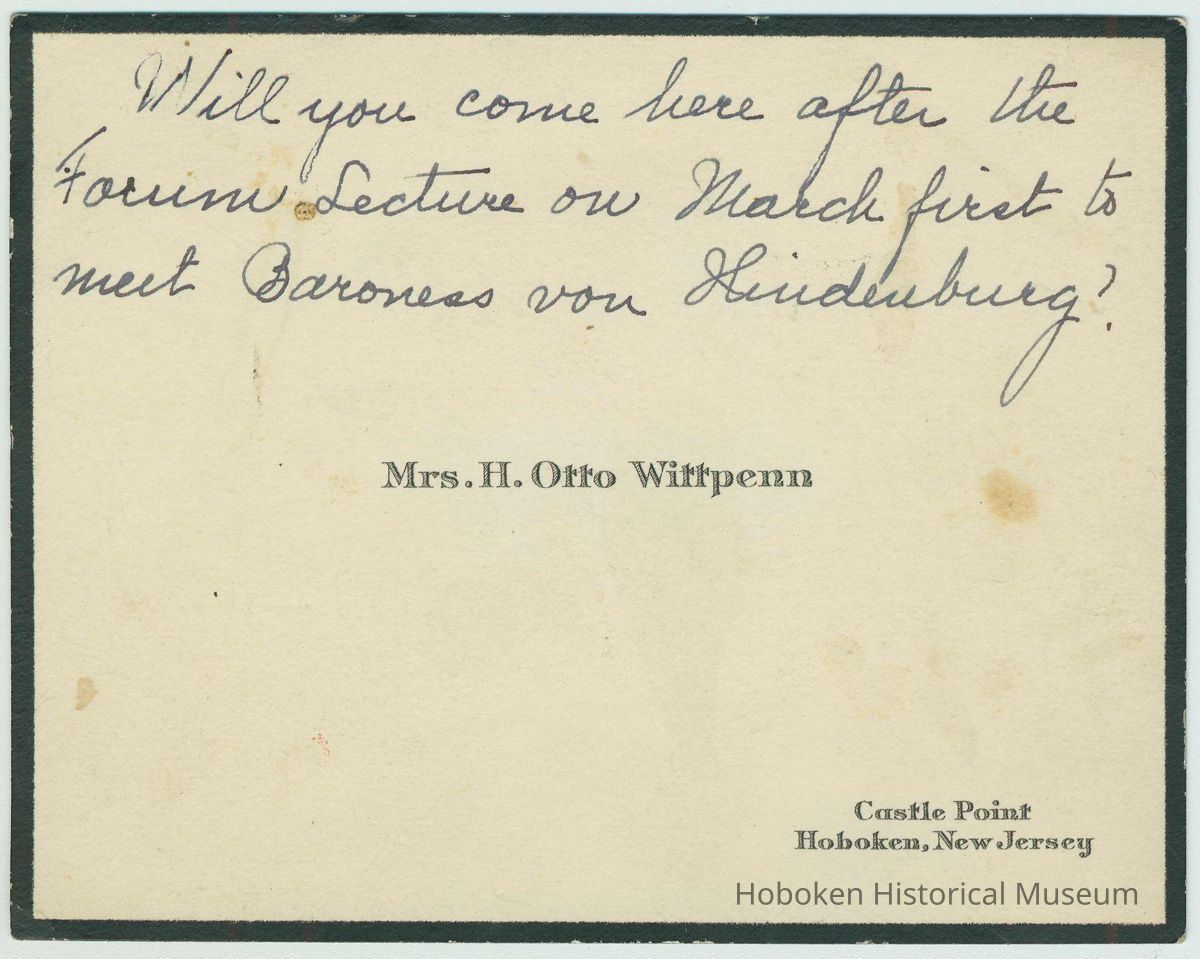 Will you come here after the
Forum Lecture on March first to
meet Baroness von Hindenburg?
Mrs. H. Otto Wittpenn
Castle Point
Hoboken, New Jersey
Hoboken Historical Museum